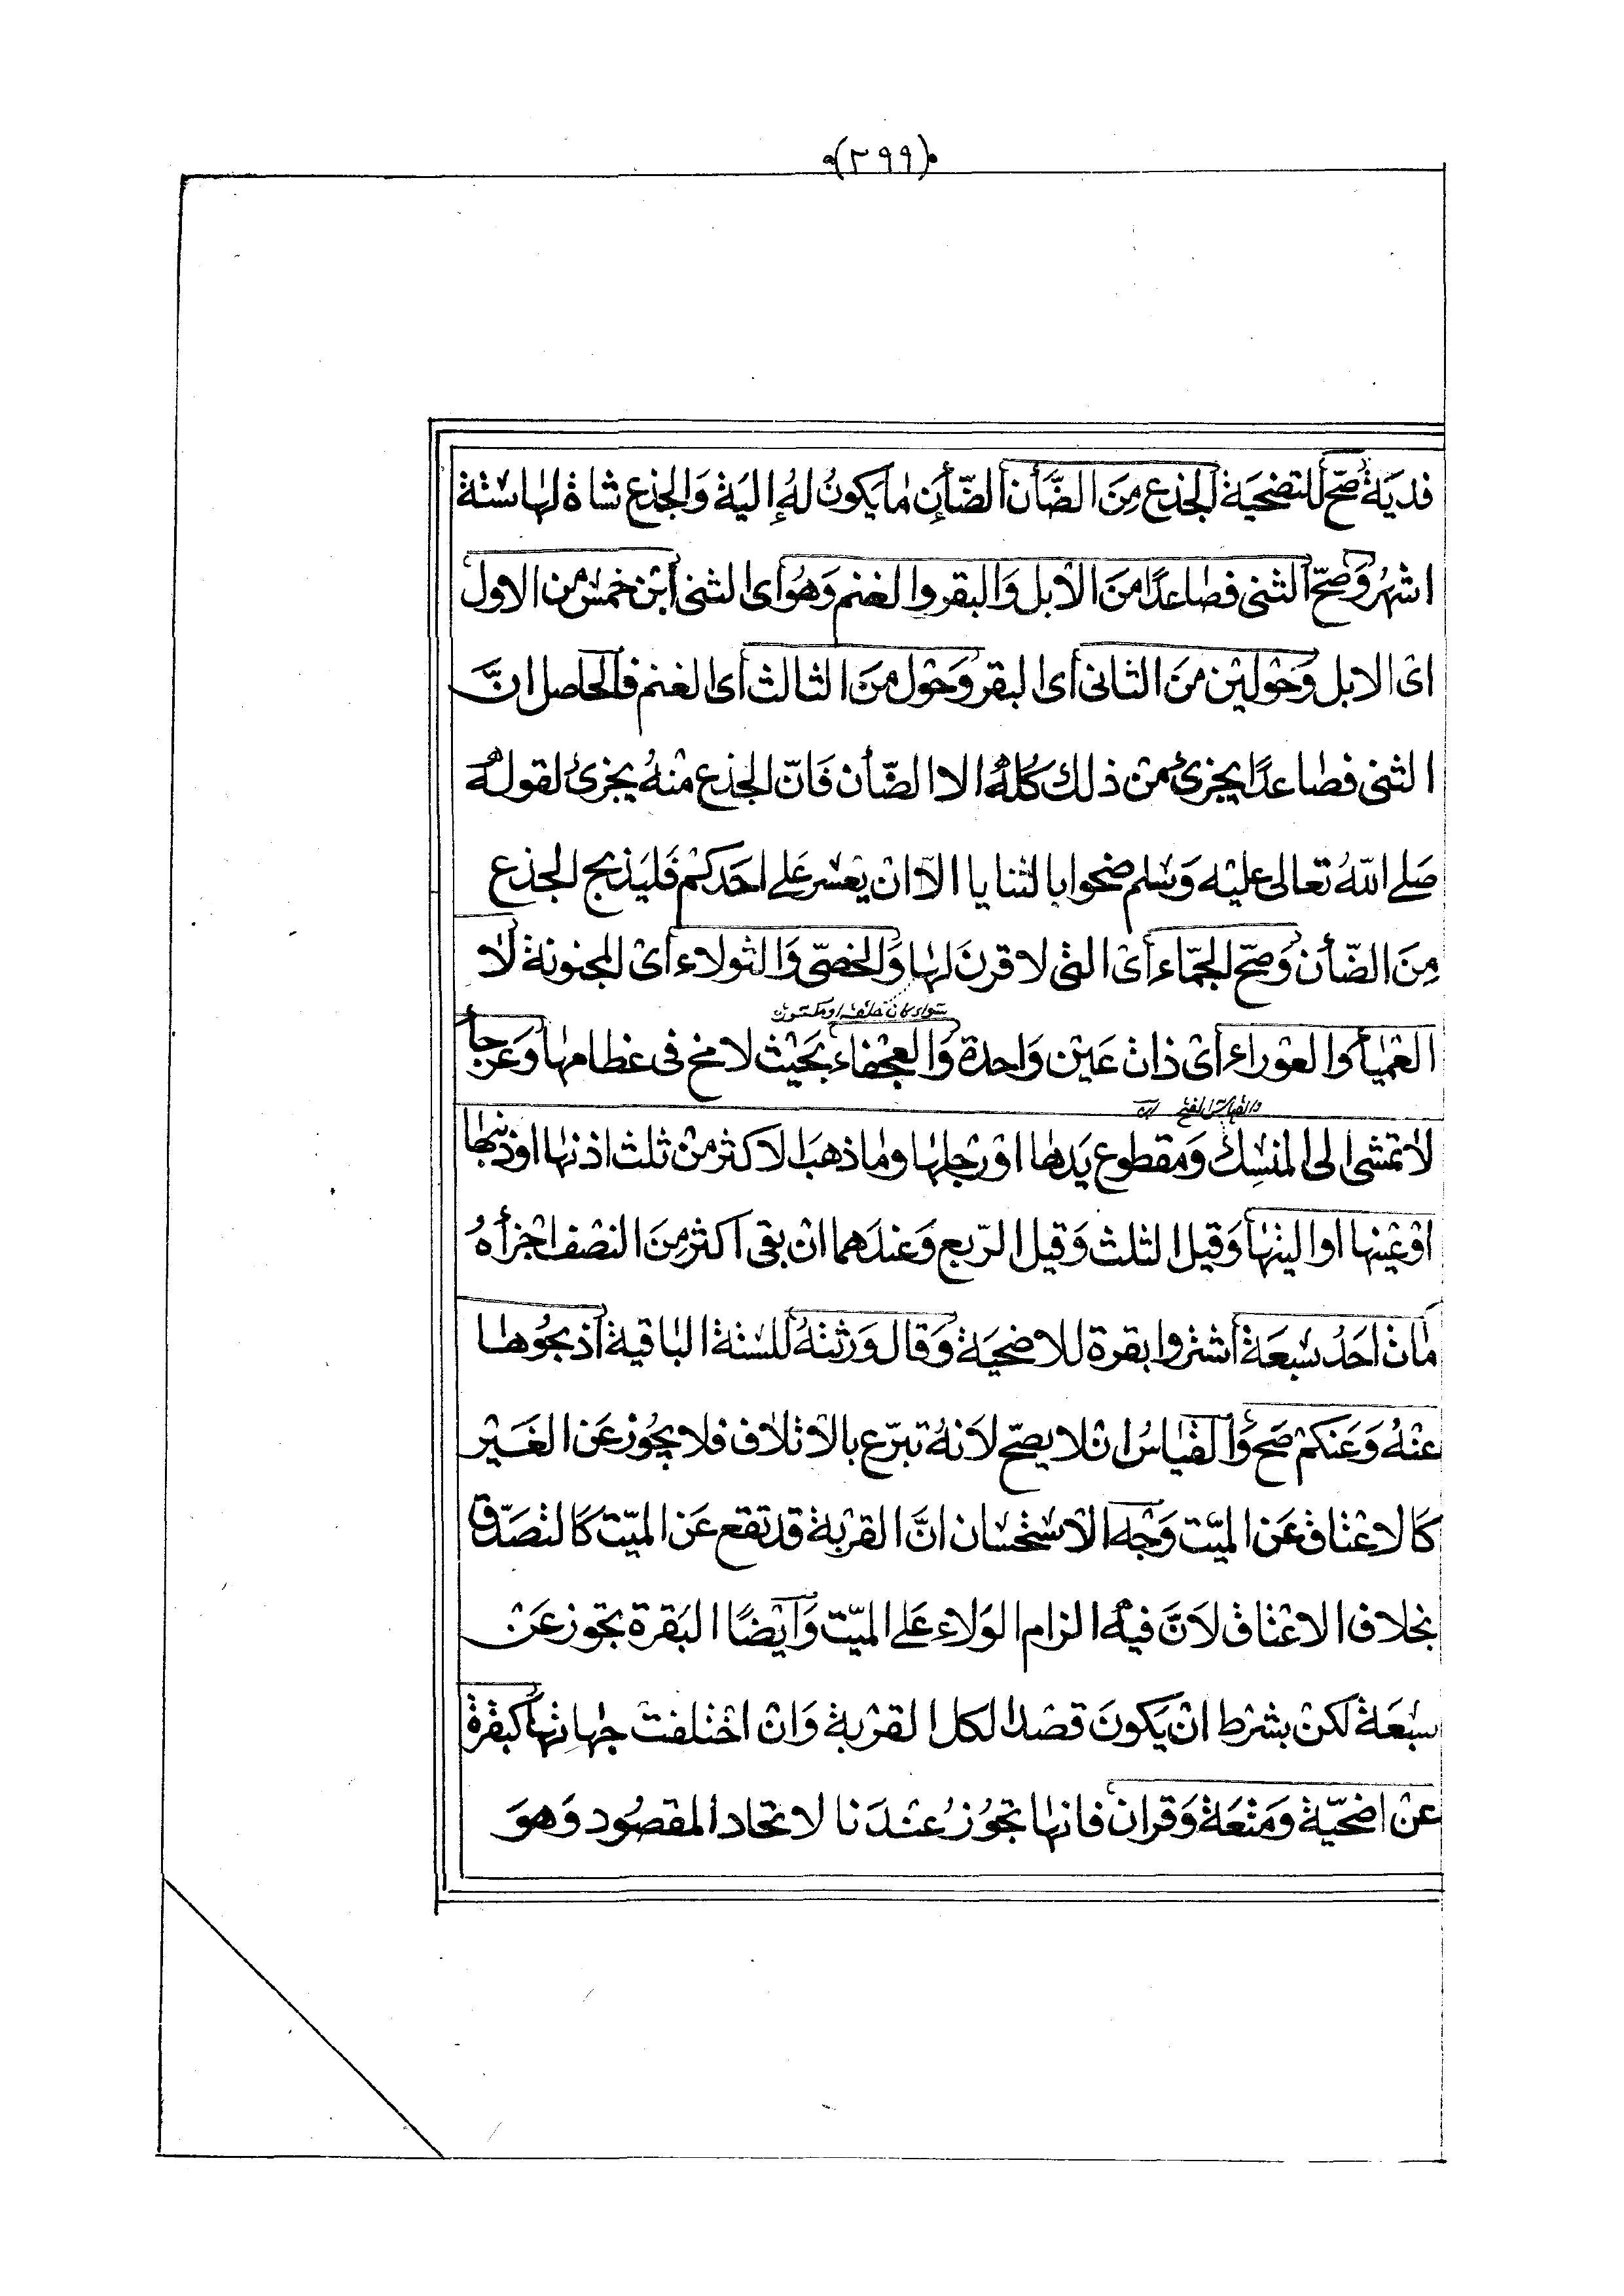 (٣٩٩)
فديَة صحّ للتضحيَة الجذع مِنَ الضَّأن الضّأن مايكونُ لهُ إلية وَالجذع شاة لها ستة
اشهُر وَصحّ الثنى فصاعدًا منَ الابل وَالبقر والغنم وَهُوَ اى الثنى ابن خمس من الاول
اى الابل وَحَولين منَ الثانى اى البقر وَحَول منَ الثالث اى الغنم فالحاصل انَّ
الثنى فصاعدًا يجزئ من ذلك كلهُ الا الضّأن فَانّ الجذع منهُ يجزئ لقولهُ
صَلى اللهُ تعالى عليه وَسلم ضحوا بالثنايا الاّ ان يعسر عَلى احَدكم فَليَذبح الجذع
مِنَ الضّأن وَصحّ الجمّاء اى التى لا قرنَ لها وَالخصىّ وَالثولاء اى المجنونة لا
سواء كان خلقة او مكسورة
العَمياء والعَوراء اى ذات عَين وَاحدة وَالعجفاء بحَيث لا مخ فى عظامها وَعَرجاء
لا تمشى الى المنسِك وَمقطوع يَدها او رجلها وماذهبَ الاكثر من ثلث اذنها او ذنبها
او عَينها او اليتها وَقيل الثلث وَقيل الرّبع وَعندَهما ان بقى اكثر مِنَ النصف اجزأهُ
مات احَدُ سبعَة اشتروا بقرة للاضحيَة وَقال وَرثتهُ للستة الباقية اذبحُوها
عنهُ وَعَنكم صَح وَالقياسُ ان لا يصحّ لاَنهُ تبرّع بالاتلاف فلا يجُوز عَن الغَير
كَالاعتاق عَن الميّت وَجه الاستحسان انَّ القربة قد تقع عَن الميّت كَالتصَدّق
بخلاف الاعتاق لاَنَّ فيهُ الزام الوَلاء عَلى الميّت وَايَضًا البَقرة تجوز عَن
سبعَة لكن بشرط ان يَكونَ قصد الكل القربة وَان اختلفت جهاتها كبقرة
عن اضحيّة وَمتعَة وَقران فانها تجُوزُ عندَنا لاتحاد المقصُود وَهوَ